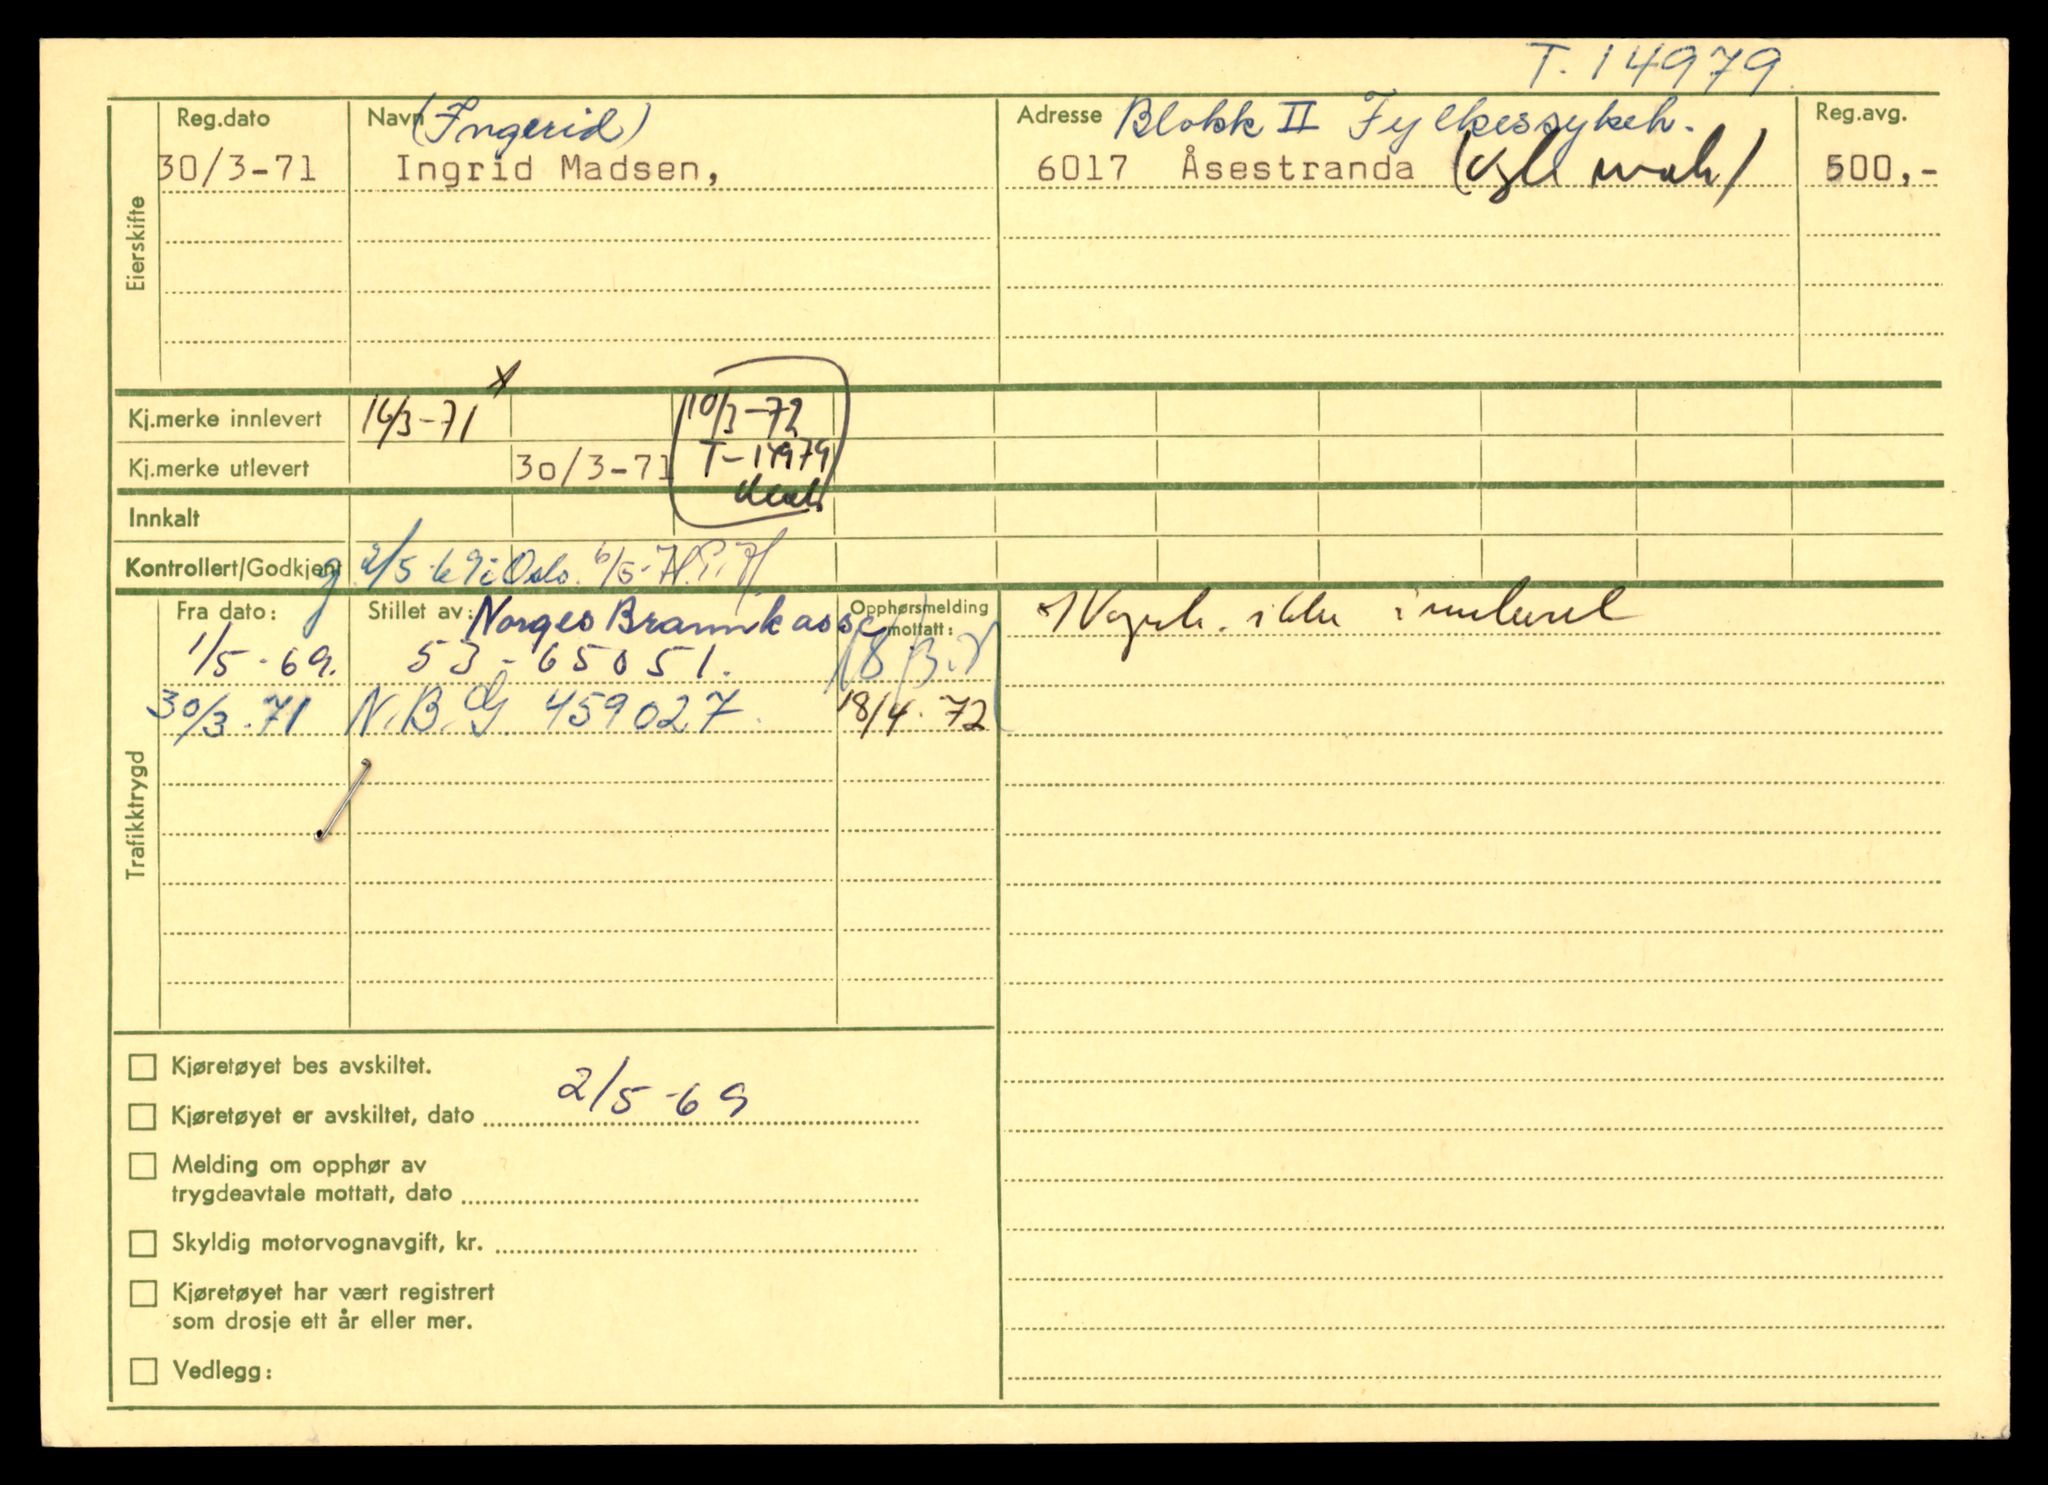 T. 14979.
Eierskifte
Reg.dato
Navn (Ingerid)
Adresse Blokk II Fylkessykeh.
Reg.avg.
30/3-71 Ingrid Madsen, 6017 Åsestranda 500,-
Kj.merke innlevert 16/3-71 x 10/3-72
Kj.merke utlevert 30/3-71 T-14979
Innkalt
Kontrollert/Godkjent 2/5-69 i Oslo. 6/5-71
Trafikktrygd
Fra dato: Stillet av: Norges Brannkasse Opphørsmelding mottatt:
1/5-69. 53-65051.
30/3-71 N.B. G 459027. 18/4-72
x Vognk. ikke innlevert
Kjøretøyet bes avskiltet.
Kjøretøyet er avskiltet, dato 2/5-69
Melding om opphør av
trygdeavtale mottatt, dato
Skyldig motorvognavgift, kr.
Kjøretøyet har vært registrert
som drosje ett år eller mer.
Vedlegg: